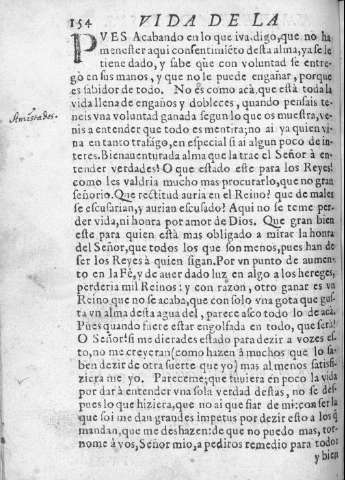 154 VIDA DE LA
PVES Acabando en lo que iva, digo, que no ha
menester aqui consentimiẽto desta alma, ya se le
tiene dado, y sabe que con voluntad se entre-
gò en sus manos, y que no le puede engañar, porque
es sabidor de todo. No es como acà, que està toda la
vida llena de engaños y dobleces, quando pensais te-
neis vna voluntad ganada segun lo que os muestra, ve-
nis a entender que todo es mentira; no ai ya quien vi-
va en tanto trafago, en especial si ai algun poco de in-
Amistades.
teres. Bienauenturada alma que la trae el Señor à en-
tender verdades! O que estado este para los Reyes!
como les valdria mucho mas procurarlo, que no gran
señorio. Que rectitud auria en el Reino? que de males
se escusarian, y aurian escusado? Aqui no se teme per-
der vida, ni honra por amor de Dios. Que gran bien
este para quien està mas obligado a mirar la honra
del Señor, que todos los que son menos, pues han de
ser los Reyes à quien sigan. Por vn punto de aumen-
to en la Fè, y de auer dado luz en algo a los hereges,
perderia mil Reinos: y con razon, otro ganar es vn
Reino que no se acaba, que con solo vna gota que gus-
ta vn alma desta agua del, parece asco todo lo de acà.
Pues quando fuere estar engolfada en todo, que serà?
O Señor! si me dierades estado para dezir a vozes es-
to, no me creyeran (como hazen à muchos que lo sa-
ben dezir de otra suerte que yo) mas al menos satisfi-
ziera me yo. Pareceme, que tuuiera en poco la vida
por dar à entender vna sola verdad destas, no se des-
pues lo que hiziera, que no ai que fiar de mi: con ser la
que soi me dan grandes impetus por dezir esto a los q̃
mandan, que me deshazen: de que no puedo mas, tor-
nome à vos, Señor mio, a pediros remedio para todo
y bien